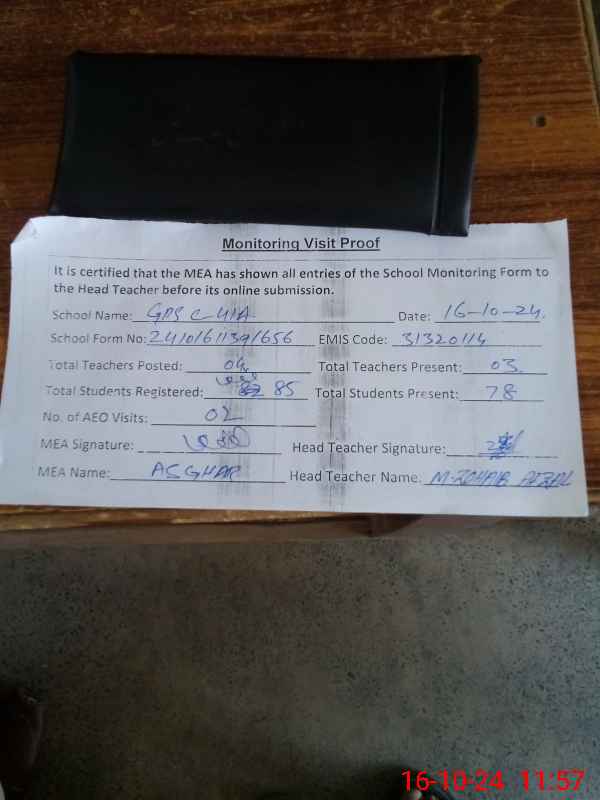 Monitoring Visit Proof
It is certified that the MEA has shown all entries of the School Monitoring Form to
the Head Teacher before its online submission.
School Name: GPS C-41A Date: 16-10-24.
School Form No: EMIS Code: 31320114
Total Teachers Posted: 04 Total Teachers Present: 03.
Total Students Registered: 85 Total Students Present: 78
No. of AEO Visits: 02
MEA Signature: Head Teacher Signature:
MEA Name: ASGHAR Head Teacher Name: M-ZOHAIB AFZAL
16-10-24 11:57